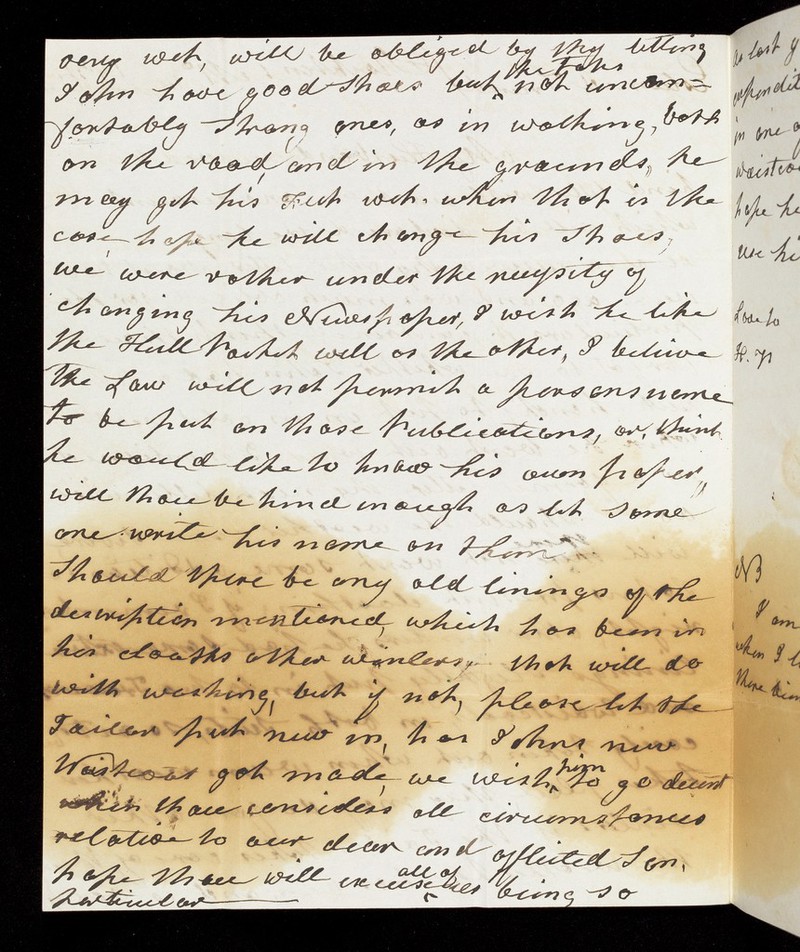 very wet, will be obliged by thy letting
John have good Shoes but not uncom=
fortably Strong ones, as in walking, both
on the road, and in the grounds, he
may get his Feet wet. when that is the
case hope he will change his Shoes,
we were rather under the necessity of
changing his Newspaper, I wish he like
the Hull Packet well as the other, I believe
the Law will not permit a persons name
to be put on those Publications, or, think
he would like to know his own paper,,
will thou be kind enough as let some
one write his name on them
Should there be any old linings of the
description mentioned, which has been in
his cloaths other winters, that will do
with washing, but if not, please let the
Tailor put new in, has Johns new
Waistcoat got made, we wish him to go decent
when thou considers all circumstances
relative to our dear and afflicted Son,
hope thou will excuse all of us being so
particular
as last
in one
waistcoa
hope he
use hi
Love to
NB
I am
when I